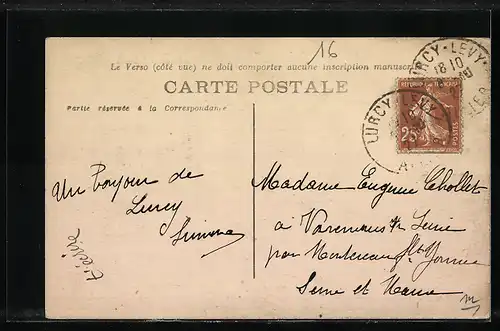 16
Le Verso (côté vue) ne doit comporter aucune inscription manuscrite
CARTE POSTALE
Partie réservée à la Correspondance
LURCY-LEVY
18 10
LURCY-LEVY
25c
Un bonjour de
Lurcy
Simone
Madame Eugène Chollet
à Varennes s/r Seine
par Montereau flt Yonne
Seine et Marne